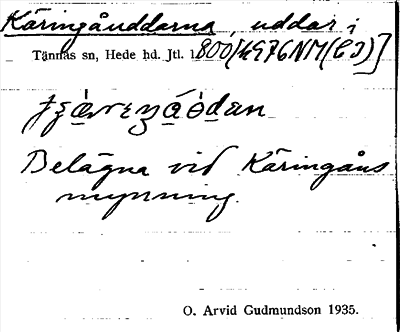 Käringåuddarna, uddar i
Tännäs sn, Hede hd. Jtl. 1.800[4976NM(CI)]
Belägna vid Käringåns
mynning.
O. Arvid Gudmundson 1935.